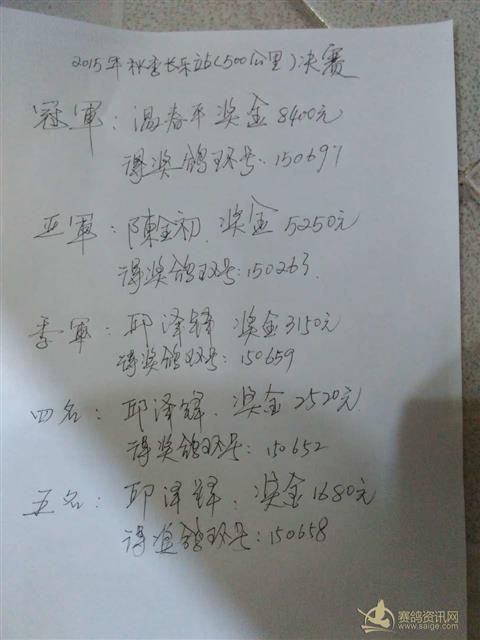 2015年秋季长乐站(500公里)决赛
冠軍：温春平 奖金8400元
得奖鸽环号：150691
亚軍：陳金初．奖金5250元
得奖鸽环号：150263
季軍：邱泽锋 奖金3150元
得奖鸽环号：150659
四名：邱泽锋．奖金2520元
得奖鸽环号：150652
五名：邱泽锋．奖金1680元
得奖鸽环号：150658
赛鸽资讯网
www.saige.com